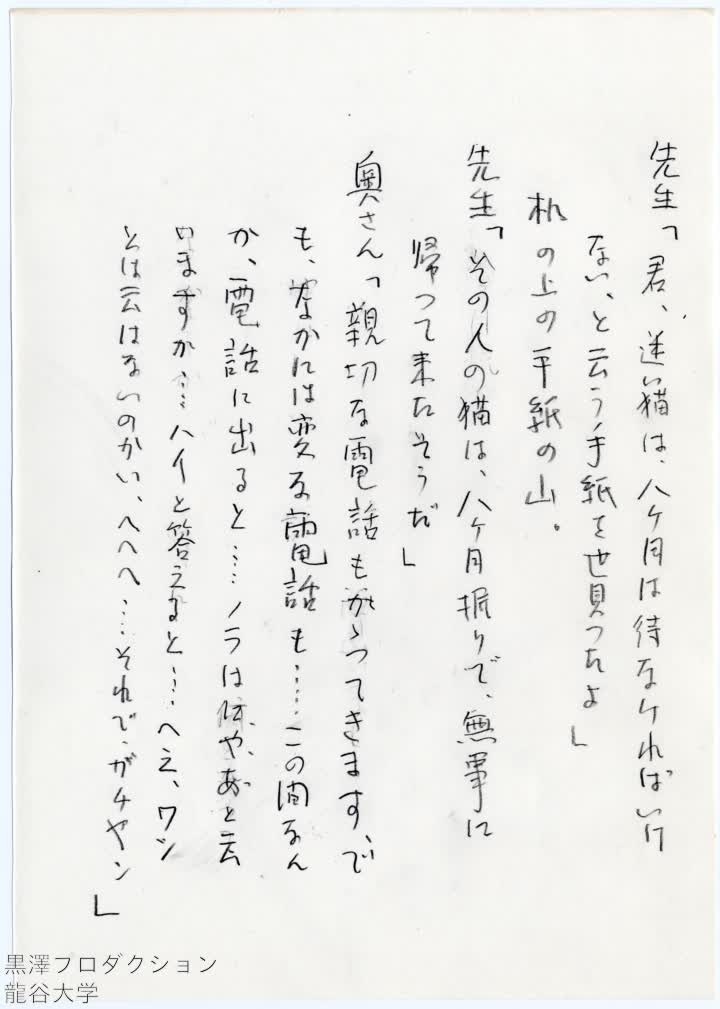 先生「君、迷い猫は、八ケ月は待なければいけ
ない、と云う手紙を貰つたよ」
机の上の手紙の山。
先生「その人の猫は、八ケ月振りで、無事に
帰つて来たそうだ」
奥さん「親切な電話もかゝつてきます、で
も、なかには変な電話も……この間なん
か、電話に出ると……ノラは
やあと云
いますか……ハイと答えると……へえ、ワン
とは云はないのかい、へへへ……それで、ガチヤン
」
黒澤プロダクション
龍谷大学